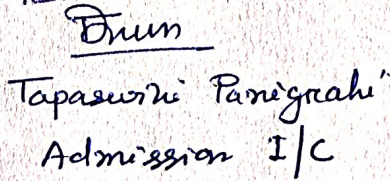 Drum
Tapaswini Panigrahi
Admission I/C